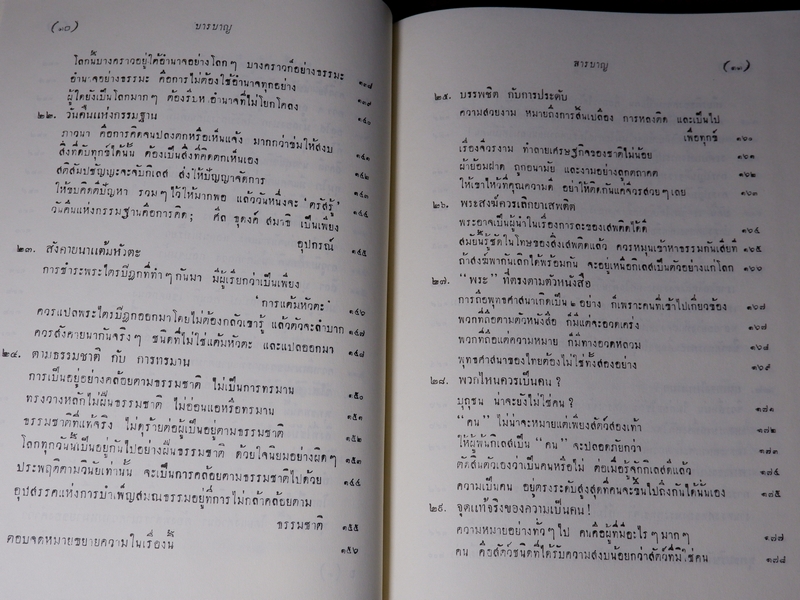 (๑๐) สารบาญ
โลกนี้บางคราวอยู่ใต้อำนาจอย่างโลกๆ บางคราวก็อย่างธรรมะ ๑๓๘
อำนาจอย่างธรรมะ คือการไม่ต้องใช้อำนาจทุกอย่าง ๑๓๙
ผู้ใดยังเป็นโลกมากๆ ต้องรีบหาอำนาจที่ไม่โยกโคลง ๑๔๐
๒๒. วันคืนแห่งกรรมฐาน
ภาวนา คือการคิดจนปลงตกหรือเห็นแจ้ง มากกว่าข่มให้สงบ ๑๔๑
สิ่งที่ดับทุกข์ได้นั้น ต้องเป็นสิ่งที่คิดตกเห็นเอง ๑๔๒
สติสัมปชัญญะจะจับกิเลส ส่งให้ปัญญาจัดการ ๑๔๓
ให้ขบคิดตีปัญหา รวมๆ ไว้ให้มากพอ แล้ววันหนึ่งจะ "ตรัสรู้" ๑๔๔
วันคืนแห่งกรรมฐานคือการคิด; ศีล ธุดงค์ สมาธิ เป็นเพียง
อุปกรณ์ ๑๔๕
๒๓. สังคายนาแต้มหัวตะ
การชำระพระไตรปิฎกที่ทำๆ กันมา มีผู้เรียกว่าเป็นเพียง
"การแต้มหัวตะ" ๑๔๖
ควรแปลพระไตรปิฎกออกมาโดยไม่ต้องกลัวเขารู้ แล้วตัวจะลำบาก ๑๔๗
ควรสังคายนากันจริงๆ ชนิดที่ไม่ใช่แต้มหัวตะ และแปลออกมา ๑๔๘
๒๔. ตามธรรมชาติ กับ การทรมาน
การเป็นอยู่อย่างคล้อยตามธรรมชาติ ไม่เป็นการทรมาน ๑๕๐
ทรงวางหลักไม่ฝืนธรรมชาติ ไม่อ่อนแอหรือทรมาน ๑๕๑
ธรรมชาติที่แท้จริง ไม่ดุร้ายต่อผู้เป็นอยู่ตามธรรมชาติ ๑๕๒
โลกทุกวันนี้เป็นอยู่กันไปอย่างฝืนธรรมชาติ ด้วยใจนิยมอย่างผิดๆ ๑๕๓
ประพฤติตามวินัยเท่านั้น จะเป็นการคล้อยตามธรรมชาติไปด้วย ๑๕๔
อุปสรรคแห่งการบำเพ็ญสมณธรรมอยู่ที่การไม่กล้าคล้อยตาม
ธรรมชาติ ๑๕๕
ตอบจดหมายขยายความในเรื่องนี้ ๑๕๖
สารบาญ (๑๑)
๒๕. บรรพชิต กับการประดับ
ความสวยงาม หมายถึงการสิ้นเปลือง การหลงติด และเป็นไป
เพื่อทุกข์ ๑๖๐
เรื่องจีวรงาม ทำลายเศรษฐกิจของชาติไม่น้อย ๑๖๑
ผ้าย้อมฝาด ถูกอนามัย และงามอย่างลูกตถาคต ๑๖๒
ให้เขาไหว้ที่คุณความดี อย่าให้ติดกันแค่จีวรสวยๆ เลย ๑๖๓
๒๖. พระสงฆ์ควรเลิกยาเสพติด
พระอาจเป็นผู้นำในเรื่องการละของเสพติดได้ดี ๑๖๔
สมัยนี้รู้ชัดในโทษของสิ่งเสพติดแล้ว ควรหมุนเข้าหาธรรมกันเสียที ๑๖๕
ถ้าสงฆ์พากันเลิกได้พร้อมกัน จะอยู่เหนือกิเลสเป็นตัวอย่างแก่โลก ๑๖๖
๒๗. "พระ" ที่ตรงตามตัวหนังสือ
การถือพุทธศาสนาเกิดเป็น ๒ อย่าง ก็เพราะคนที่เข้าไปเกี่ยวข้อง ๑๖๗
พวกที่ถือตามตัวหนังสือ ก็มีแต่จะอวดเคร่ง ๑๖๗
พวกที่ถือแต่ความหมาย ก็มีทางอวดหลวม ๑๖๘
พุทธศาสนาของไทยต้องไม่ใช่ทั้งสองอย่าง ๑๖๙
๒๘. พวกไหนควรเป็นคน ?
บุถุชน น่าจะยังไม่ใช่คน ? ๑๗๑
"คน" ไม่น่าจะหมายแต่เพียงสัตว์สองเท้า ๑๗๒
ให้ผู้พ้นกิเลสเป็น "คน" จะปลอดภัยกว่า ๑๗๓
ตัดสินตัวเองว่าเป็นคนหรือไม่ ต่อเมื่อรู้จักกิเลสดีแล้ว ๑๗๔
ความเป็นคน อยู่ตรงระดับสูงสุดที่คนจะขึ้นไปถึงกันได้นั่นเอง ๑๗๕
๒๙. จุดแท้จริงของความเป็นคน !
ความหมายอย่างทั่วๆ ไป คนคือผู้ที่มีอะไรๆ มากๆ ๑๗๗
คน คือสัตว์ชนิดที่ได้รับความสงบน้อยกว่าสัตว์ที่มิใช่คน ๑๗๘